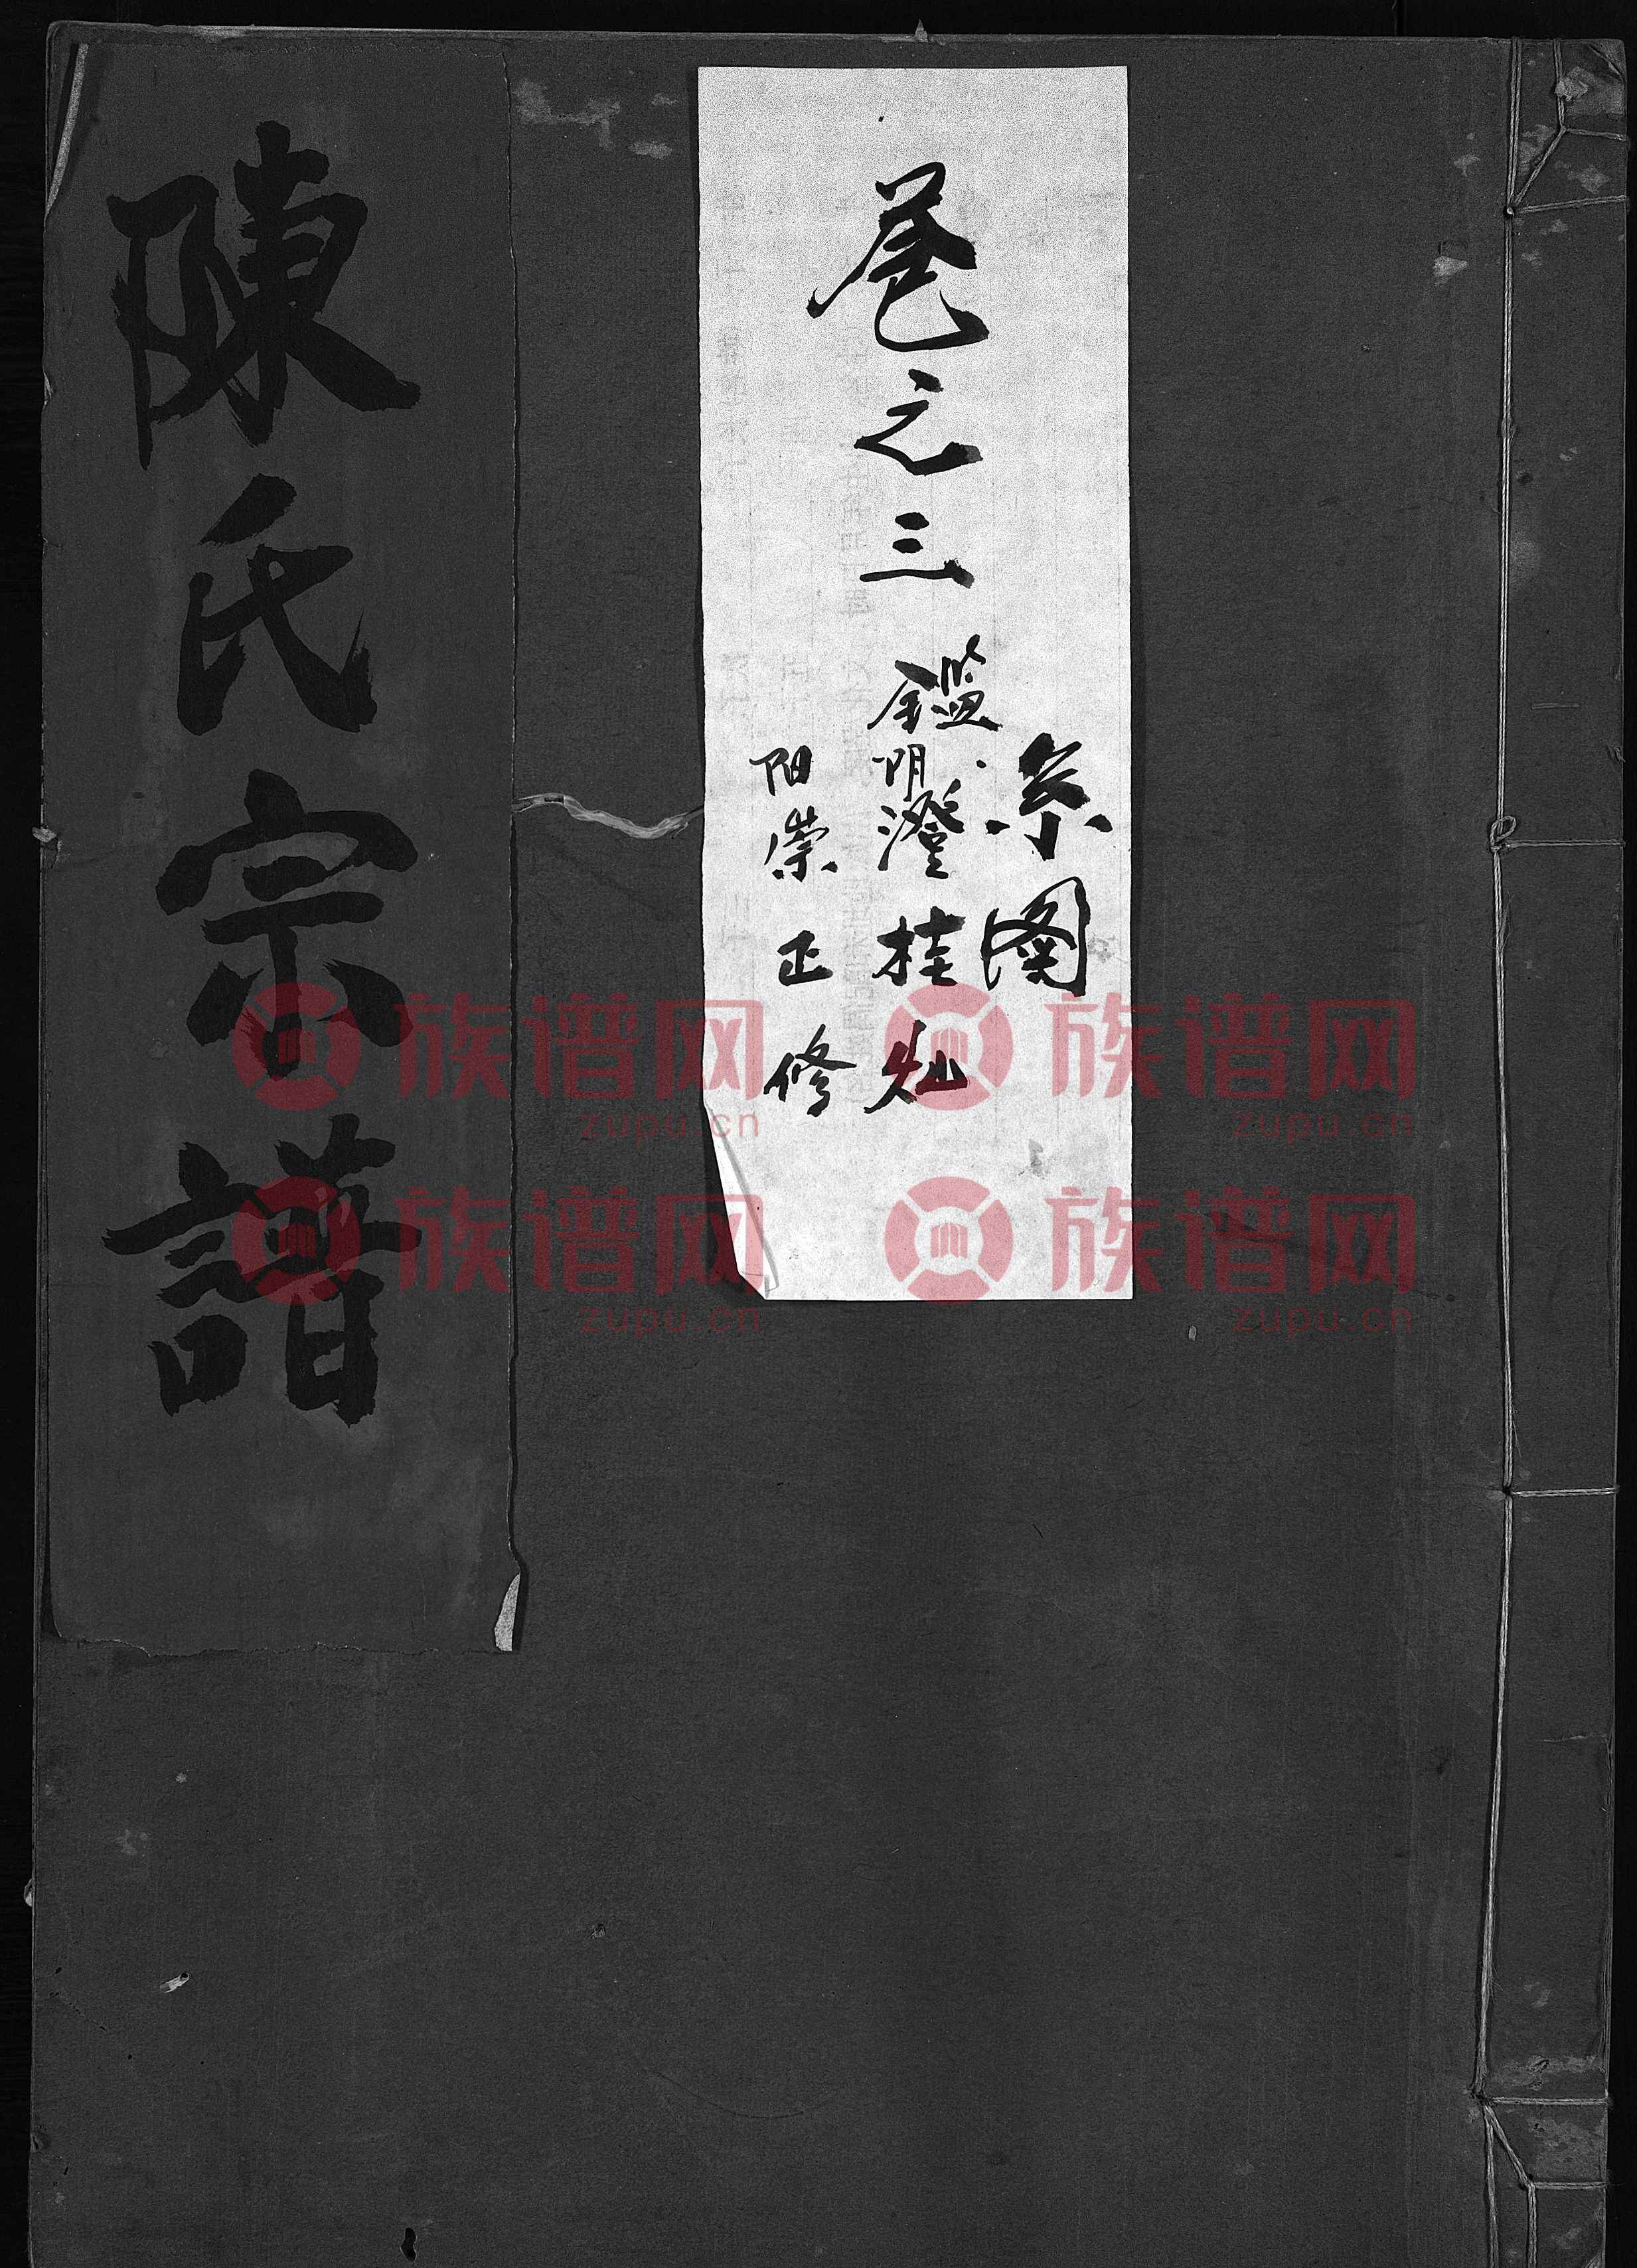 陳氏宗譜
卷之三
系图
鑑阴澄桂灿
阳崇正修
族谱网 zupu.cn
族谱网 zupu.cn
族谱网 zupu.cn
族谱网 zupu.cn